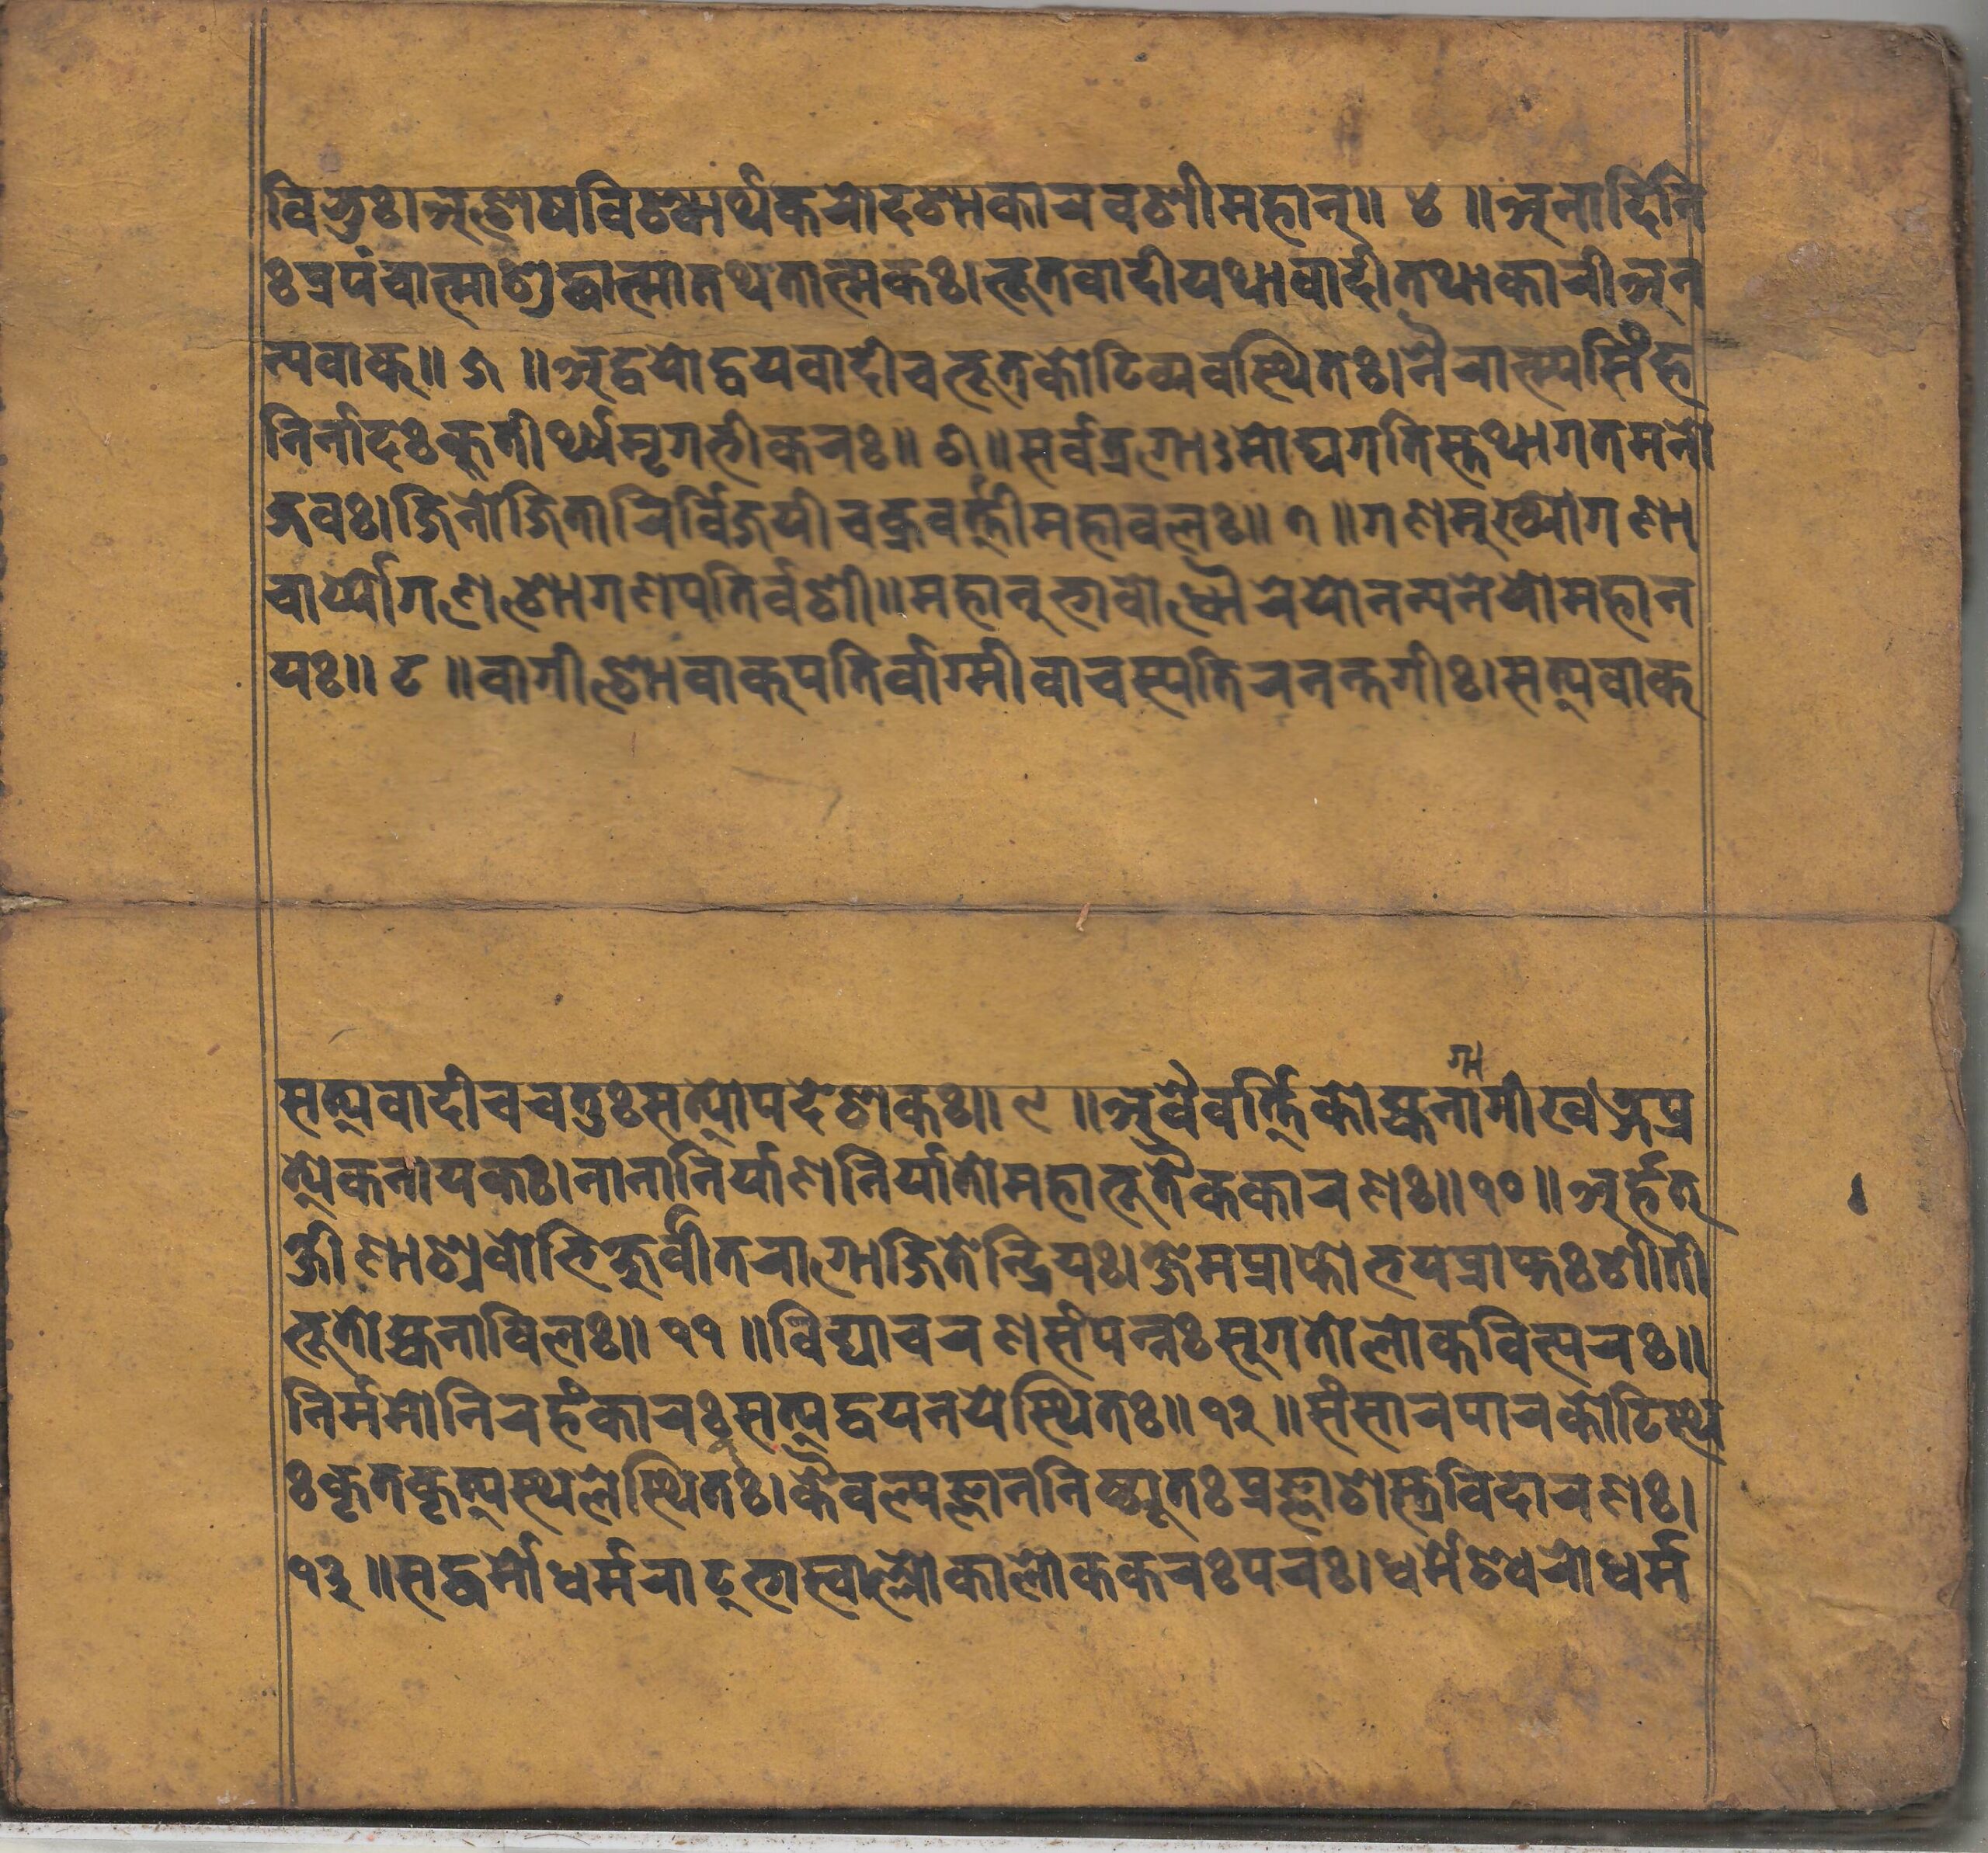 विभुः।अशेषविश्वार्थकरोदशाकारवशीमहान्॥ ४ ॥अनादिनि
ःप्रपंचात्माशुद्धात्मातथतात्मकः।भूतवादीयथावादीतथाकारीअन
न्यवाक्॥ ५ ॥अद्वयोद्वयवादीचभूतकोटिव्यवस्थितः।नैरात्म्यसिंह
निर्नादःकुतीर्थ्यमृगभीकरः॥ ६ ॥सर्वत्रगोऽमोघगतिस्तथागतमनो
जवः।जिनोजितारिर्विजयीचक्रवर्त्तीमहावलः॥ ७ ॥गणमुख्योगणा
चार्य्योगणेशोगणपतिर्वशी॥महानुभावोधौरेयोनन्यनेयोमहान
यः॥ ८ ॥वागीशोवाक्पतिर्वाग्मीवाचस्पतिरनन्तगीः।सत्यवाक्
सत्यवादीचचतुःसत्योपदेशकः॥ ९ ॥अवैवर्त्तिकोह्यनागामीखड्गप्र
त्येकनायकः।नानानिर्याणनिर्यातोमहाभूतैककारणः॥ १० ॥अर्हत्
क्षीणाश्रवोभिक्षुर्वीतरागोजितेन्द्रियः।क्षेमप्राप्तोभयप्राप्तःशीती
भूतोह्यनाविलः॥ ११ ॥विद्याचरणसंपन्नःसुगतोलोकवित्परः॥
निर्ममोनिरहंकारःसत्यद्वयनयेस्थितः॥ १२ ॥संसारपारकोटिस्थ
ःकृतकृत्यस्थलेस्थितः।कैवल्यज्ञाननिष्ठ्यूतःप्रज्ञाशस्त्रविदारणः।
१३ ॥सद्धर्मोधर्मराट्भास्वाल्लोकालोककरःपरः।धर्मेश्वरोधर्म